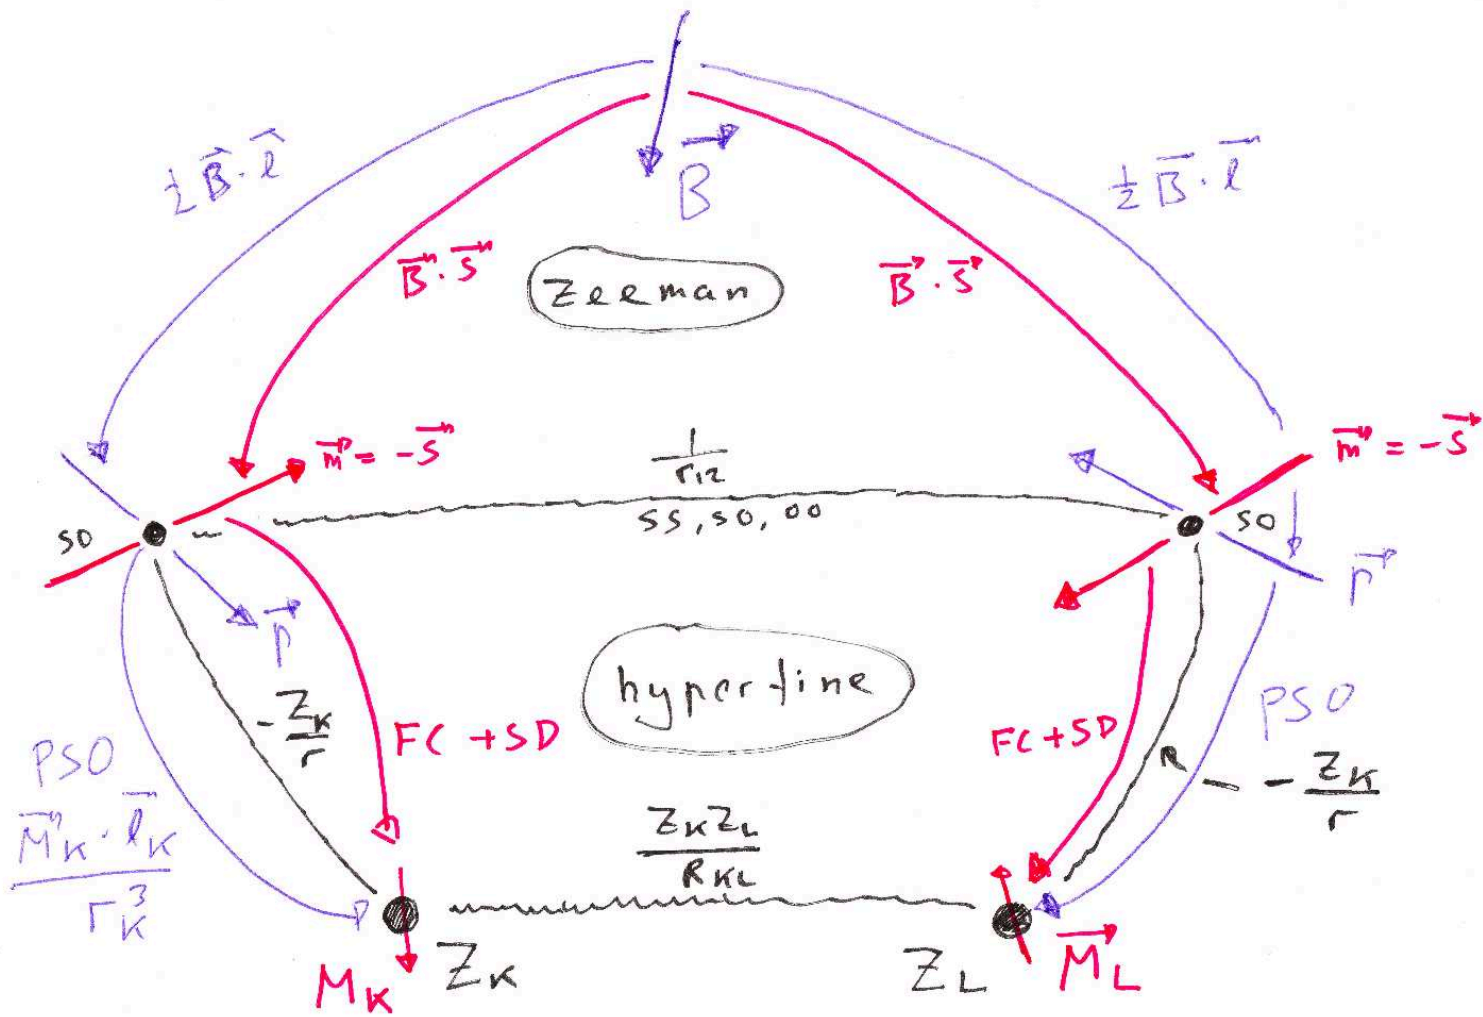 B⃗
½ B⃗ · l⃗
½ B⃗ · l⃗
B⃗ · s⃗
Zeeman
B⃗ · s⃗
m⃗ = -s⃗
1/r₁₂
m⃗ = -s⃗
SO
SS, SO, OO
SO
p⃗
p⃗
hyperfine
-Z_K/r
FC + SD
FC + SD
PSO
PSO
M⃗_K · l⃗_K / r_K³
Z_K Z_L / R_KL
- Z_K/r
Z_K
Z_L
M_K
M⃗_L